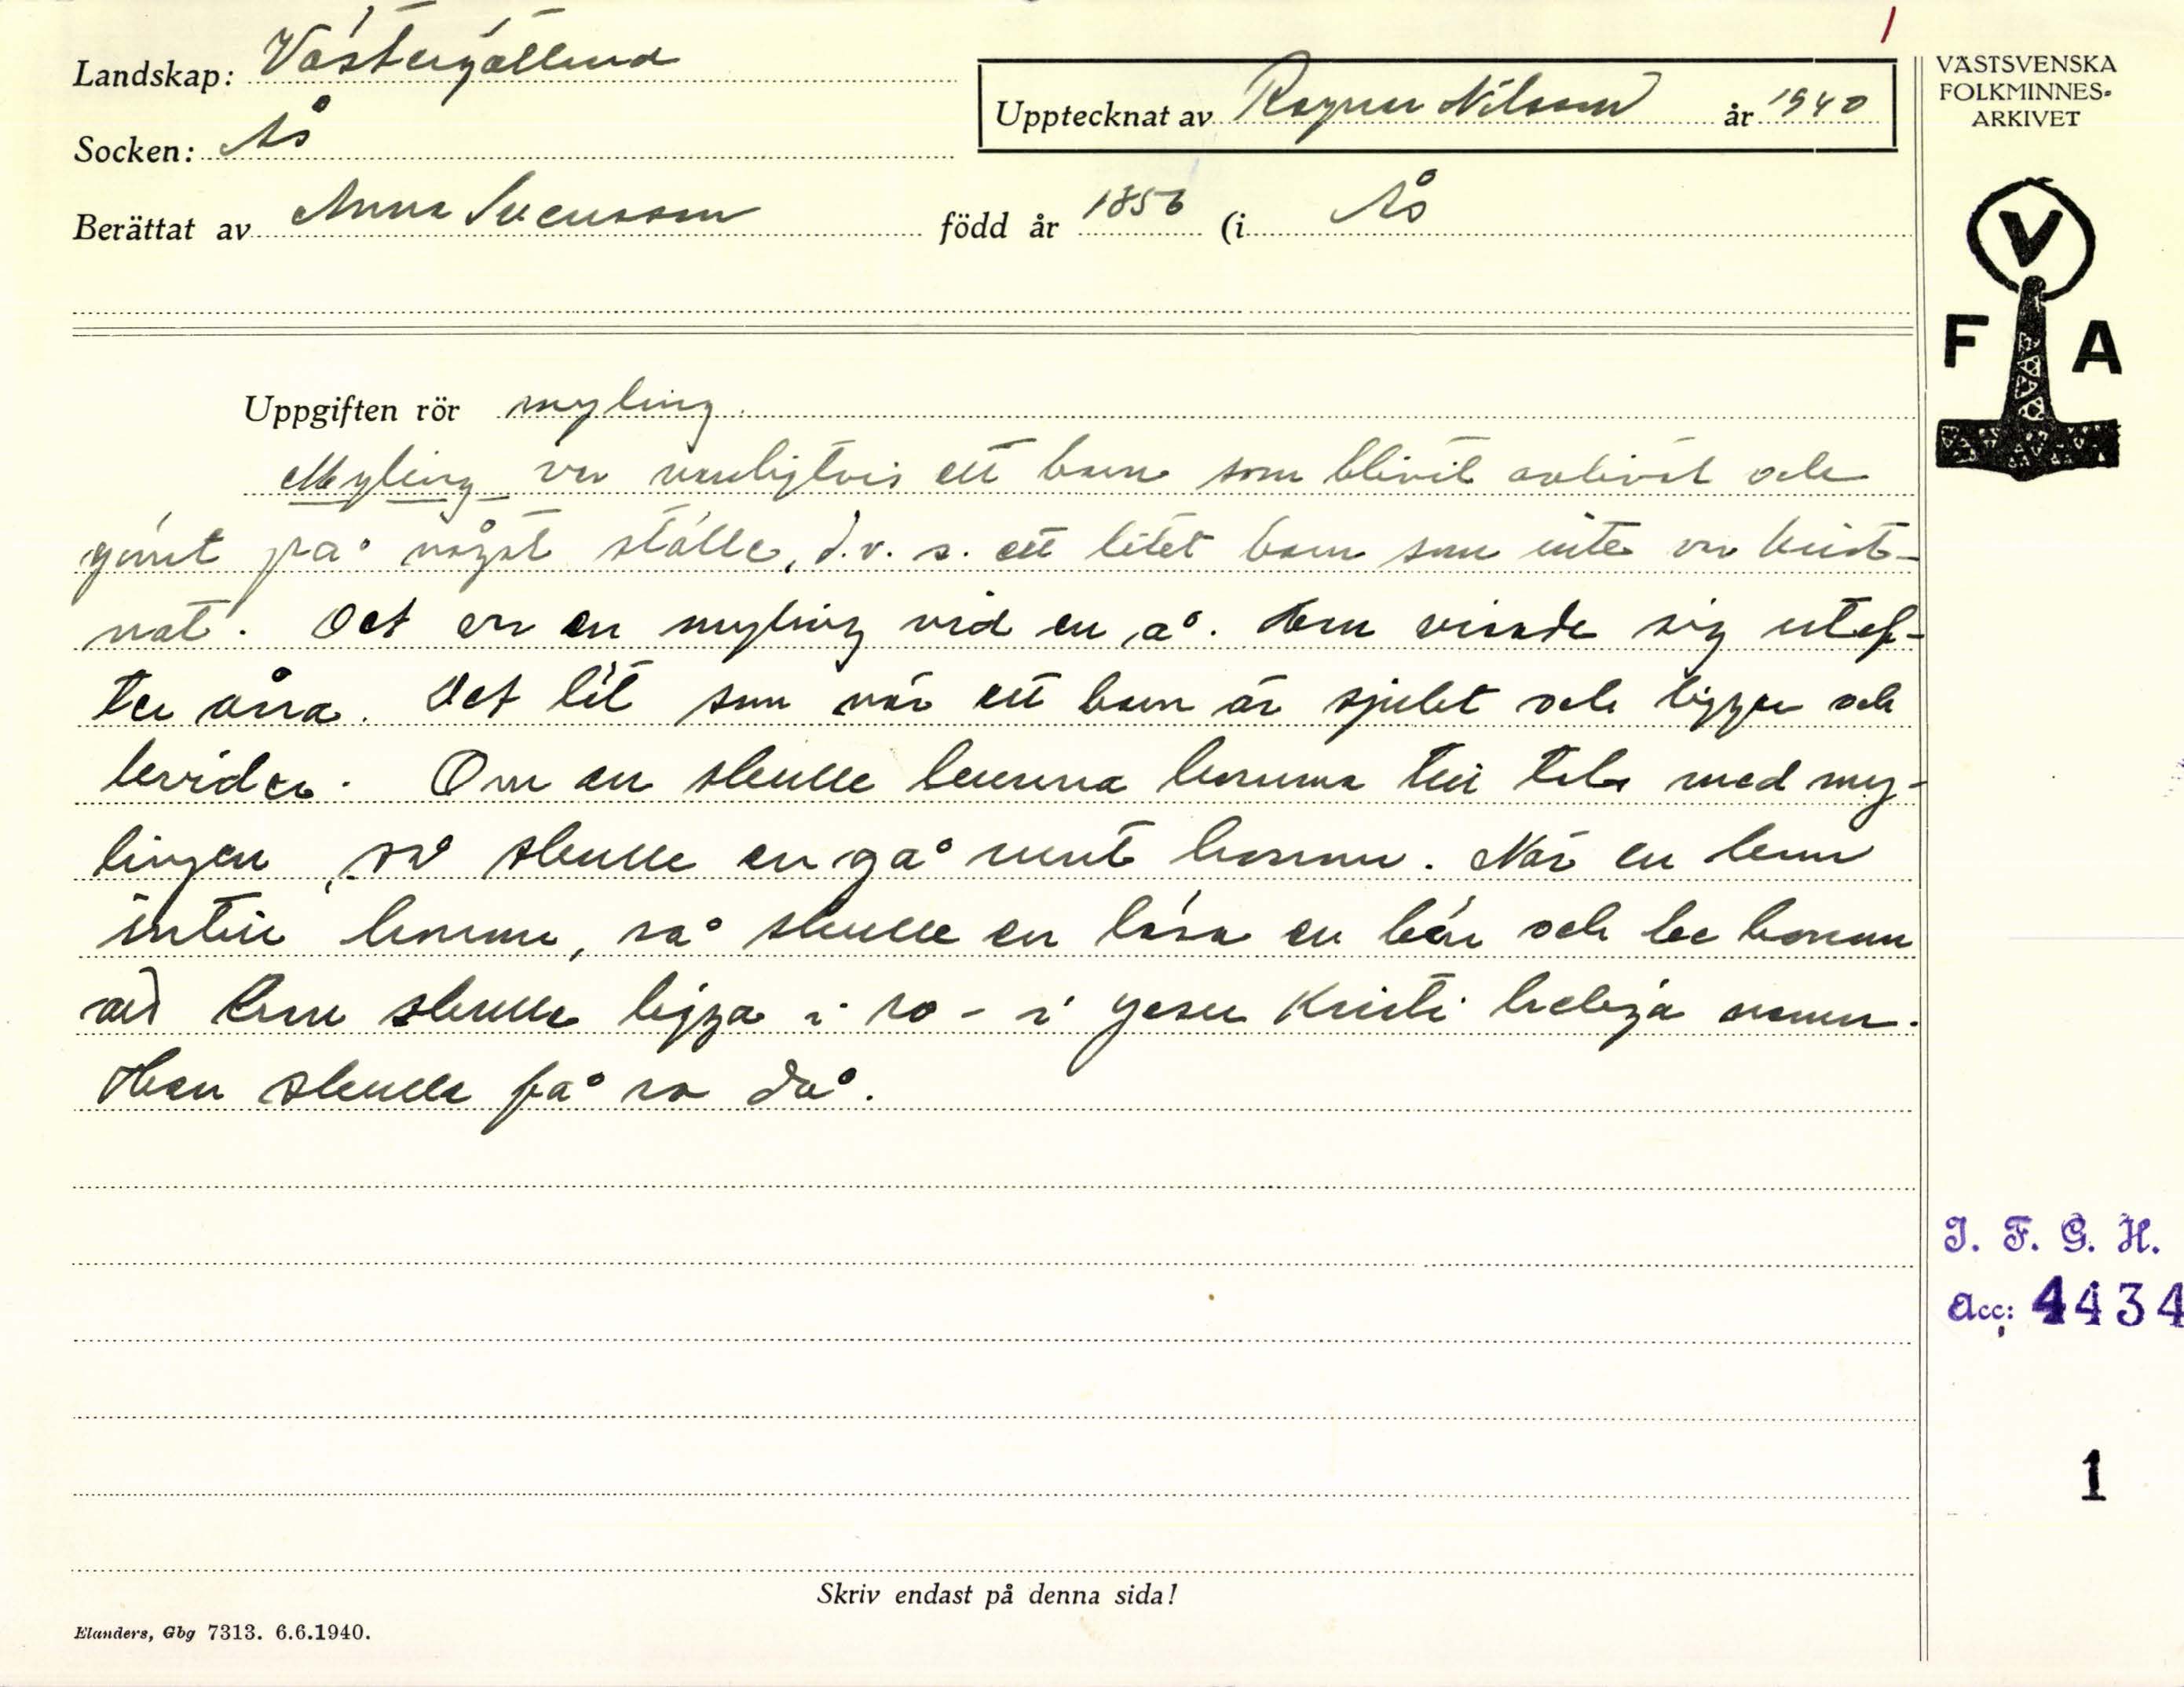 Landskap: Västergötland
Upptecknat av Ragnar Nilsson år 1940
Socken: Ås
Berättat av Anna Svensson född år 1856 (i Ås
VÄSTSVENSKA
FOLKMINNES-
ARKIVET
V
F A
Uppgiften rör myling.
Myling var vanligtvis ett barn som blivit avlivat och
gömt på något ställe, d.v.s. ett litet barn som inte var krist-
nat. Det var en myling vid en å. Han visade sig utef-
ter åra. Det lät som när ett barn är sjukt och ligger och
kvider. Om en skulle kunna komma till tals med my-
lingen, så skulle en gå runt honom. När en kom
intill honom, så skulle en läsa en bön och be honom
att han skulle ligga i ro - i Jesu Kristi heliga namn.
Han skulle få ro då.
Skriv endast på denna sida!
Elanders, Gbg 7313. 6.6.1940.
I. F. G. H.
Acc: 4434
1